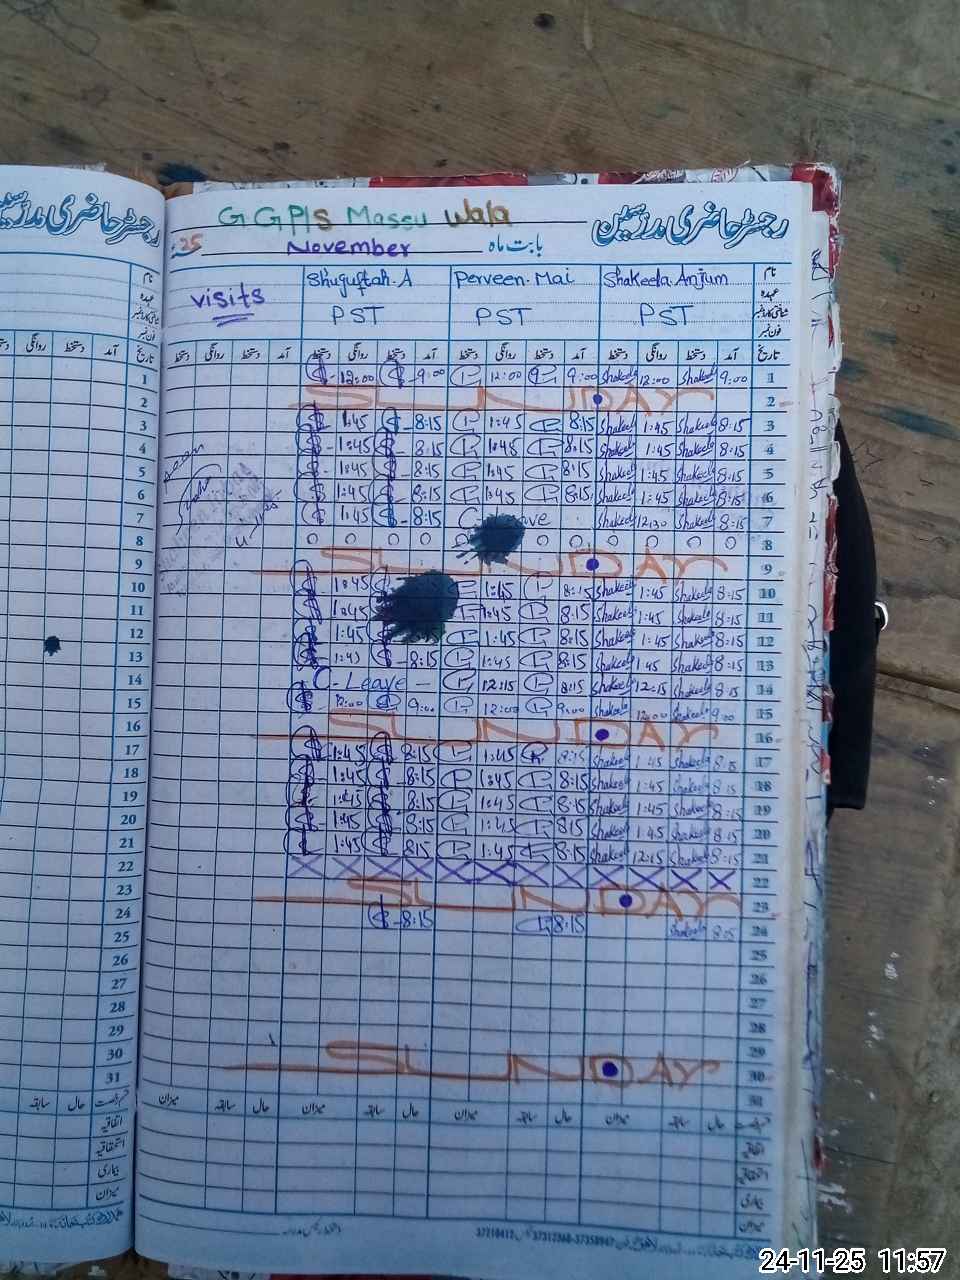 رجسٹر حاضری مدرسین
GGP/S Massu Wala
رجسٹر حاضری مدرسین
25 November بابت ماہ
visits Shuguftah.A Perveen.Mai Shakeela Anjum نام
عہدہ
PST PST PST شناختی کارڈ نمبر
فون نمبر
دستخط روانگی دستخط آمد دستخط روانگی دستخط آمد دستخط روانگی دستخط آمد دستخط روانگی دستخط آمد تاریخ
12:00 9:00 12:00 9:00 Shakeela 12:00 Shakeela 9:00 1
SUNDAY 2
1:45 8:15 1:45 8:15 Shakeela 1:45 Shakeela 8:15 3
1:45 8:15 1:45 8:15 Shakeela 1:45 Shakeela 8:15 4
1:45 8:15 1:45 8:15 Shakeela 1:45 Shakeela 8:15 5
1:45 8:15 1:45 8:15 Shakeela 1:45 Shakeela 8:15 6
1:45 8:15 Shakeela 12:30 Shakeela 8:15 7
8
SUNDAY 9
1:45 1:45 8:15 Shakeela 1:45 Shakeela 8:15 10
1:45 1:45 8:15 Shakeela 1:45 Shakeela 8:15 11
1:45 1:45 8:15 Shakeela 1:45 Shakeela 8:15 12
1:45 8:15 1:45 8:15 Shakeela 1:45 Shakeela 8:15 13
C-Leave 12:15 8:15 Shakeela 12:15 Shakeela 8:15 14
12:00 9:00 12:00 9:00 Shakeela 12:00 Shakeela 9:00 15
SUNDAY 16
1:45 8:15 1:45 8:15 Shakeela 1:45 Shakeela 8:15 17
1:45 8:15 1:45 8:15 Shakeela 1:45 Shakeela 8:15 18
1:45 8:15 1:45 8:15 Shakeela 1:45 Shakeela 8:15 19
1:45 8:15 1:45 8:15 Shakeela 1:45 Shakeela 8:15 20
1:45 8:15 1:45 8:15 Shakeela 12:15 Shakeela 8:15 21
22
SUNDAY 23
8:15 8:15 Shakeela 8:05 24
25
26
27
28
29
SUNDAY 30
31
میزان سابقہ حال میزان سابقہ حال میزان سابقہ حال
اتفاقیہ
استحقاقیہ
بیماری
میزان
24-11-25 11:57